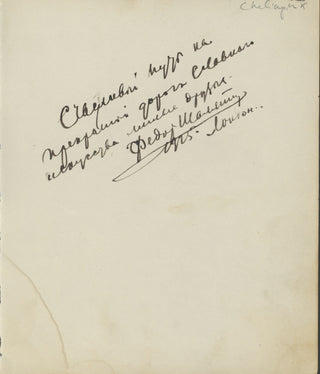 Chaliapin
Счасливой путь на
прекрасной дороге Славного
искусства милые друзья.
Федор Шаляпин
Лондон.